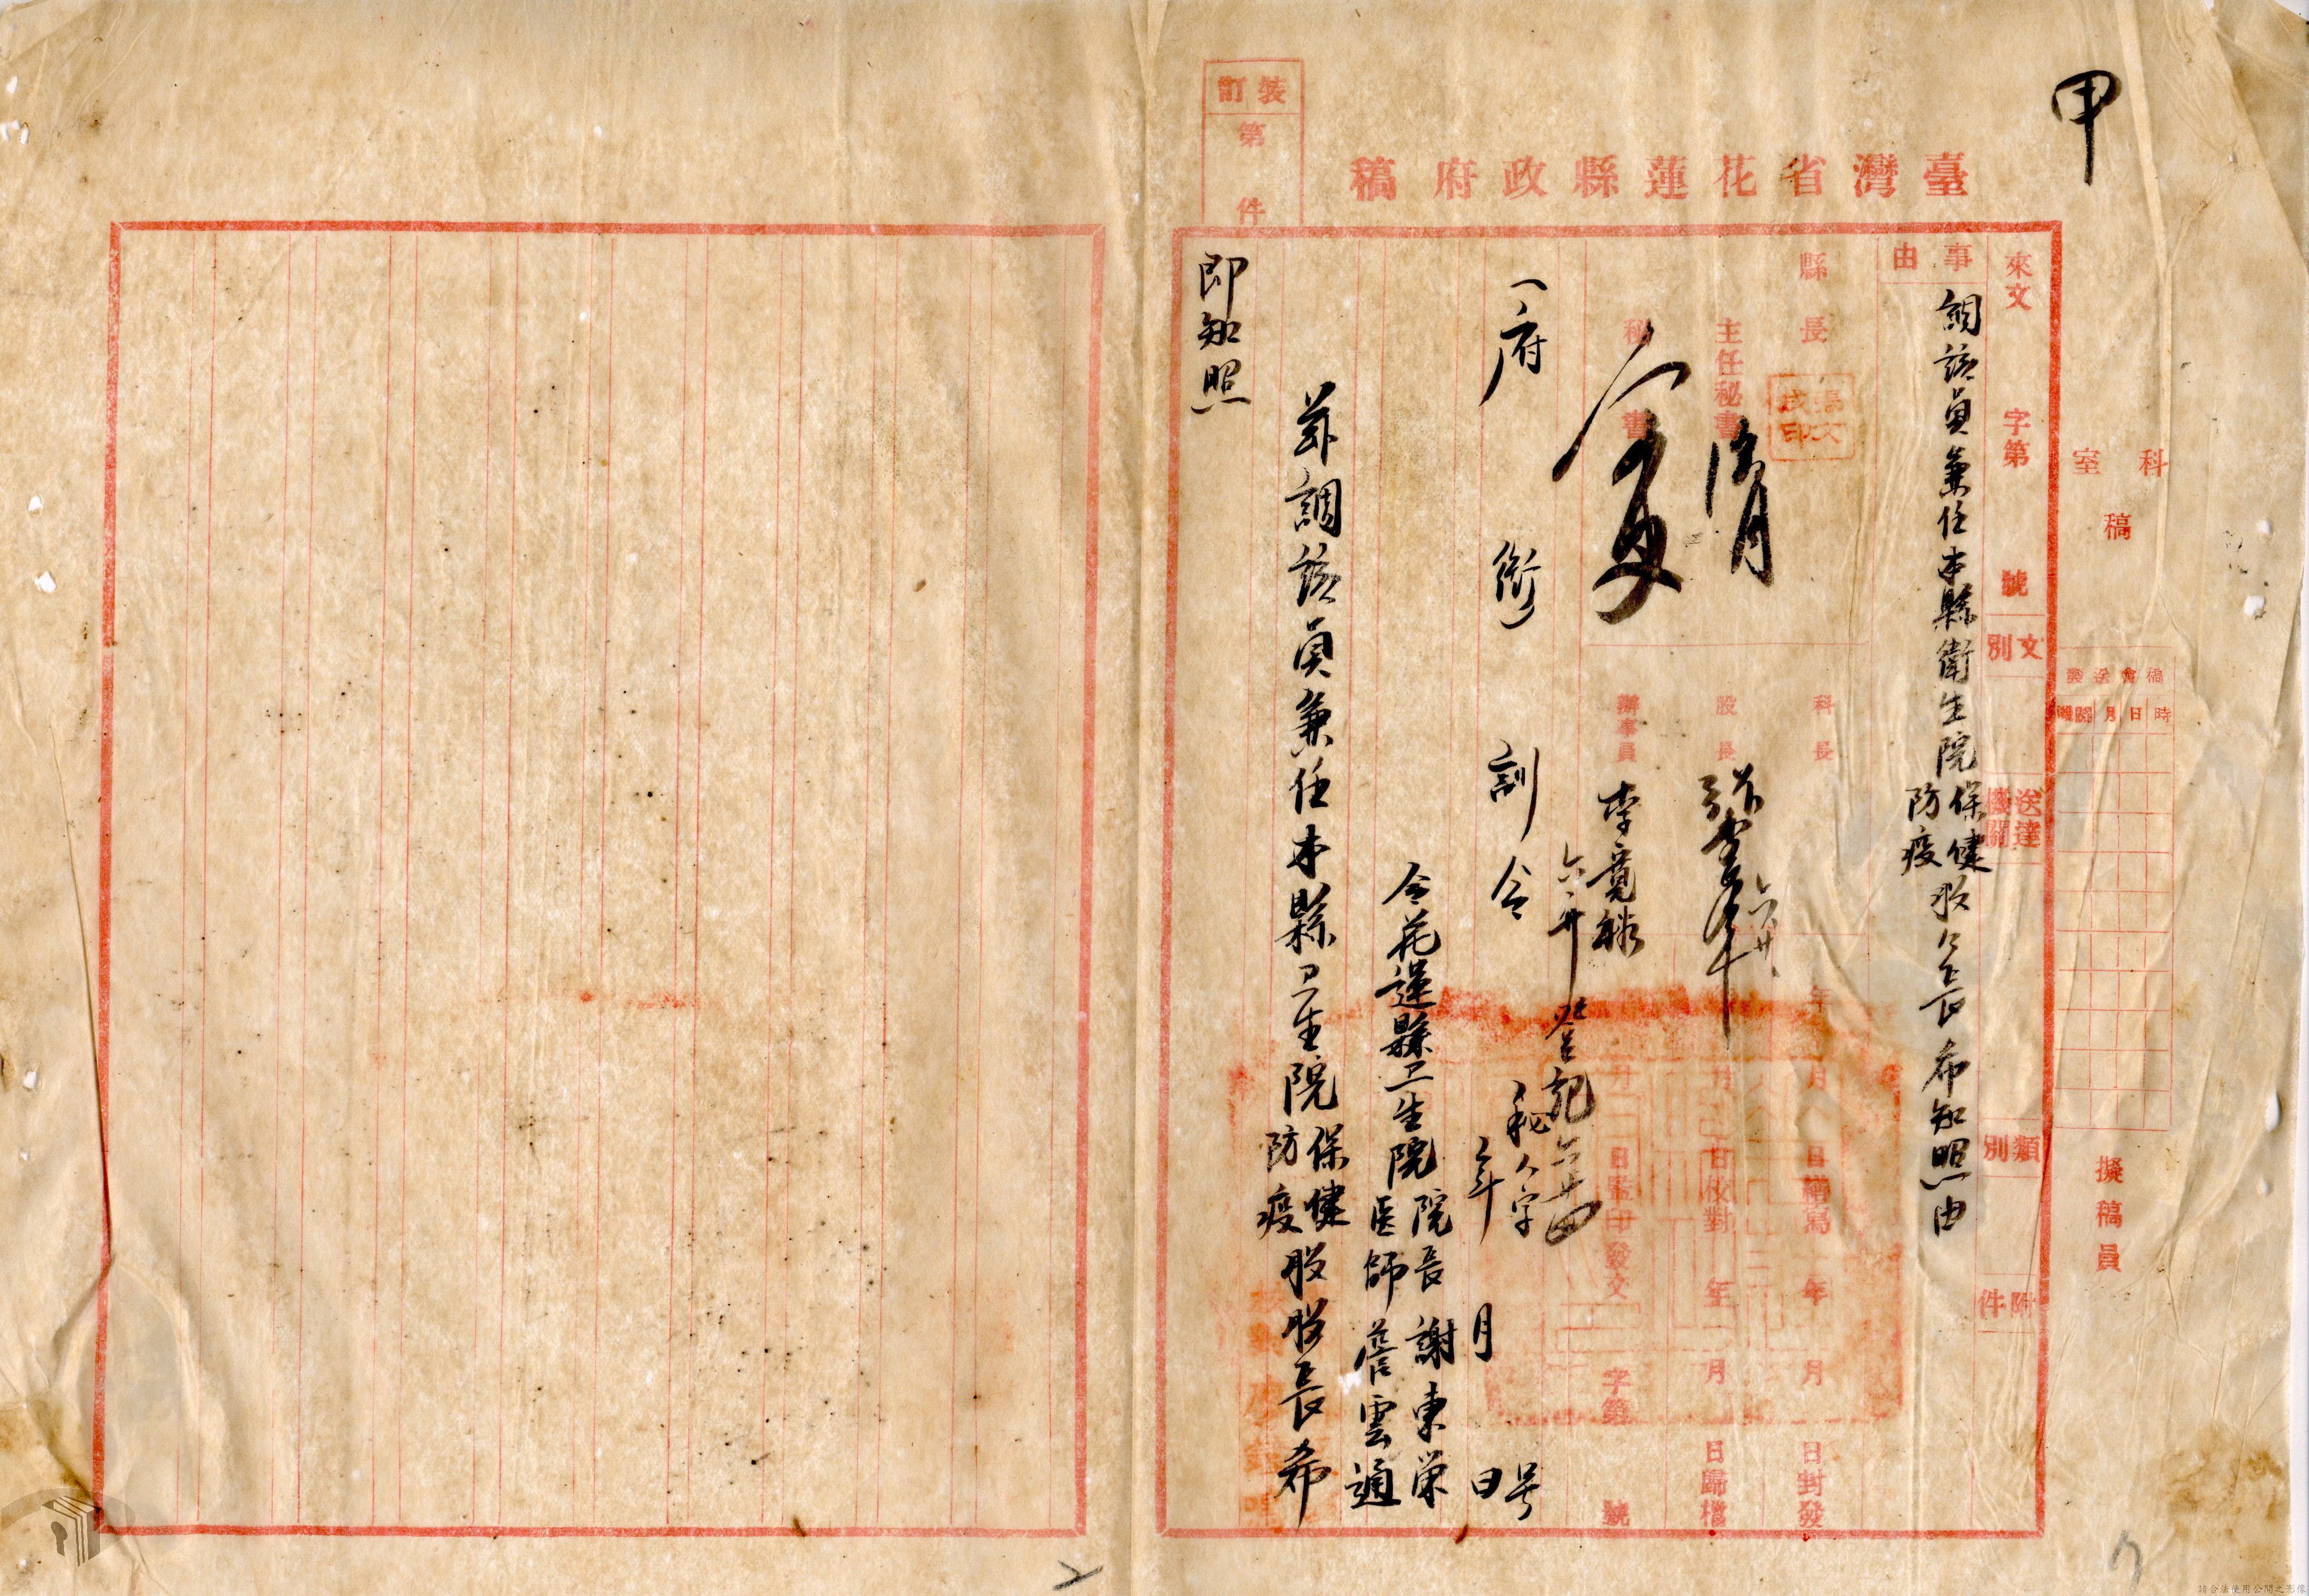 甲
臺灣省花蓮縣政府稿
裝訂
第 件
科室稿
稿會送發
時日月機關
擬稿員
來文 字第 號
文別
送達機關
類別
附件
事由
調該員兼任本縣衛生院保健防疫股股長希知照由
縣長
主任秘書
秘書
科長
股長
辦事員
年 月 日繕寫 年 月 日封發
日校對 年 月 日歸檔
日監印發文 字第 號
登記
府銜訓令 秘人字 号
年 月 日
令花蓮縣卫生院院長謝東榮
医師詹雲通
茲調該員兼任本縣卫生院保健防疫股股長希
即知照
請合法使用公開之影像